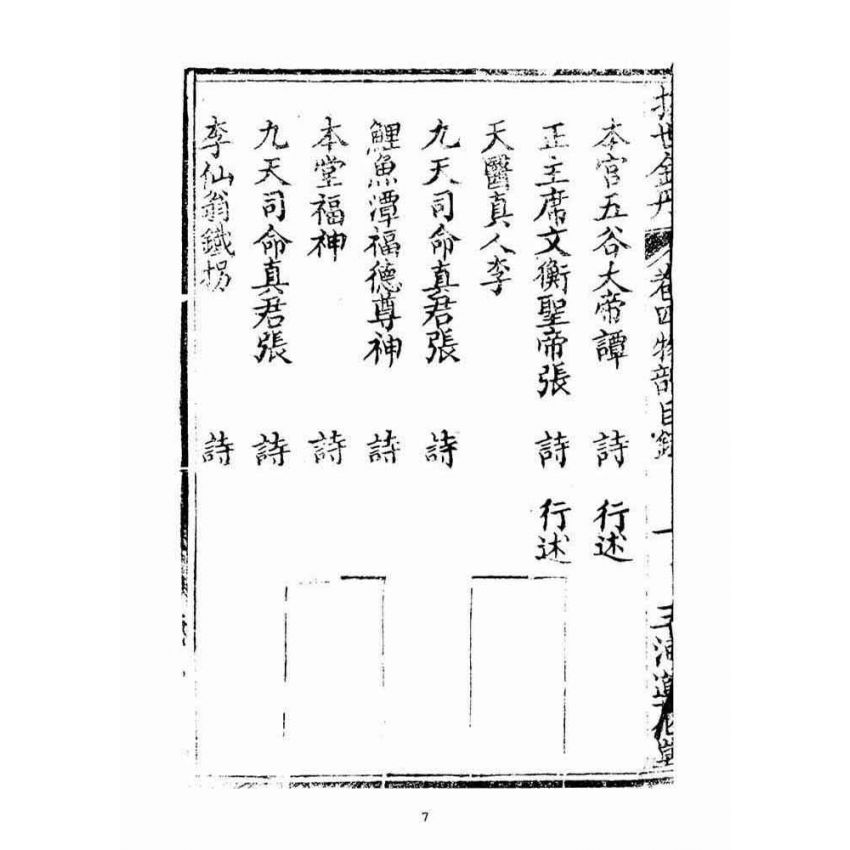 世金丹 卷四物部目錄 一
本宮五谷大帝譚 詩 行述
正主席文衡聖帝張 詩 行述
天醫真人李
九天司命真君張 詩
鯉魚潭福德尊神 詩
本堂福神 詩
九天司命真君張 詩
李仙翁鐵拐 詩
7